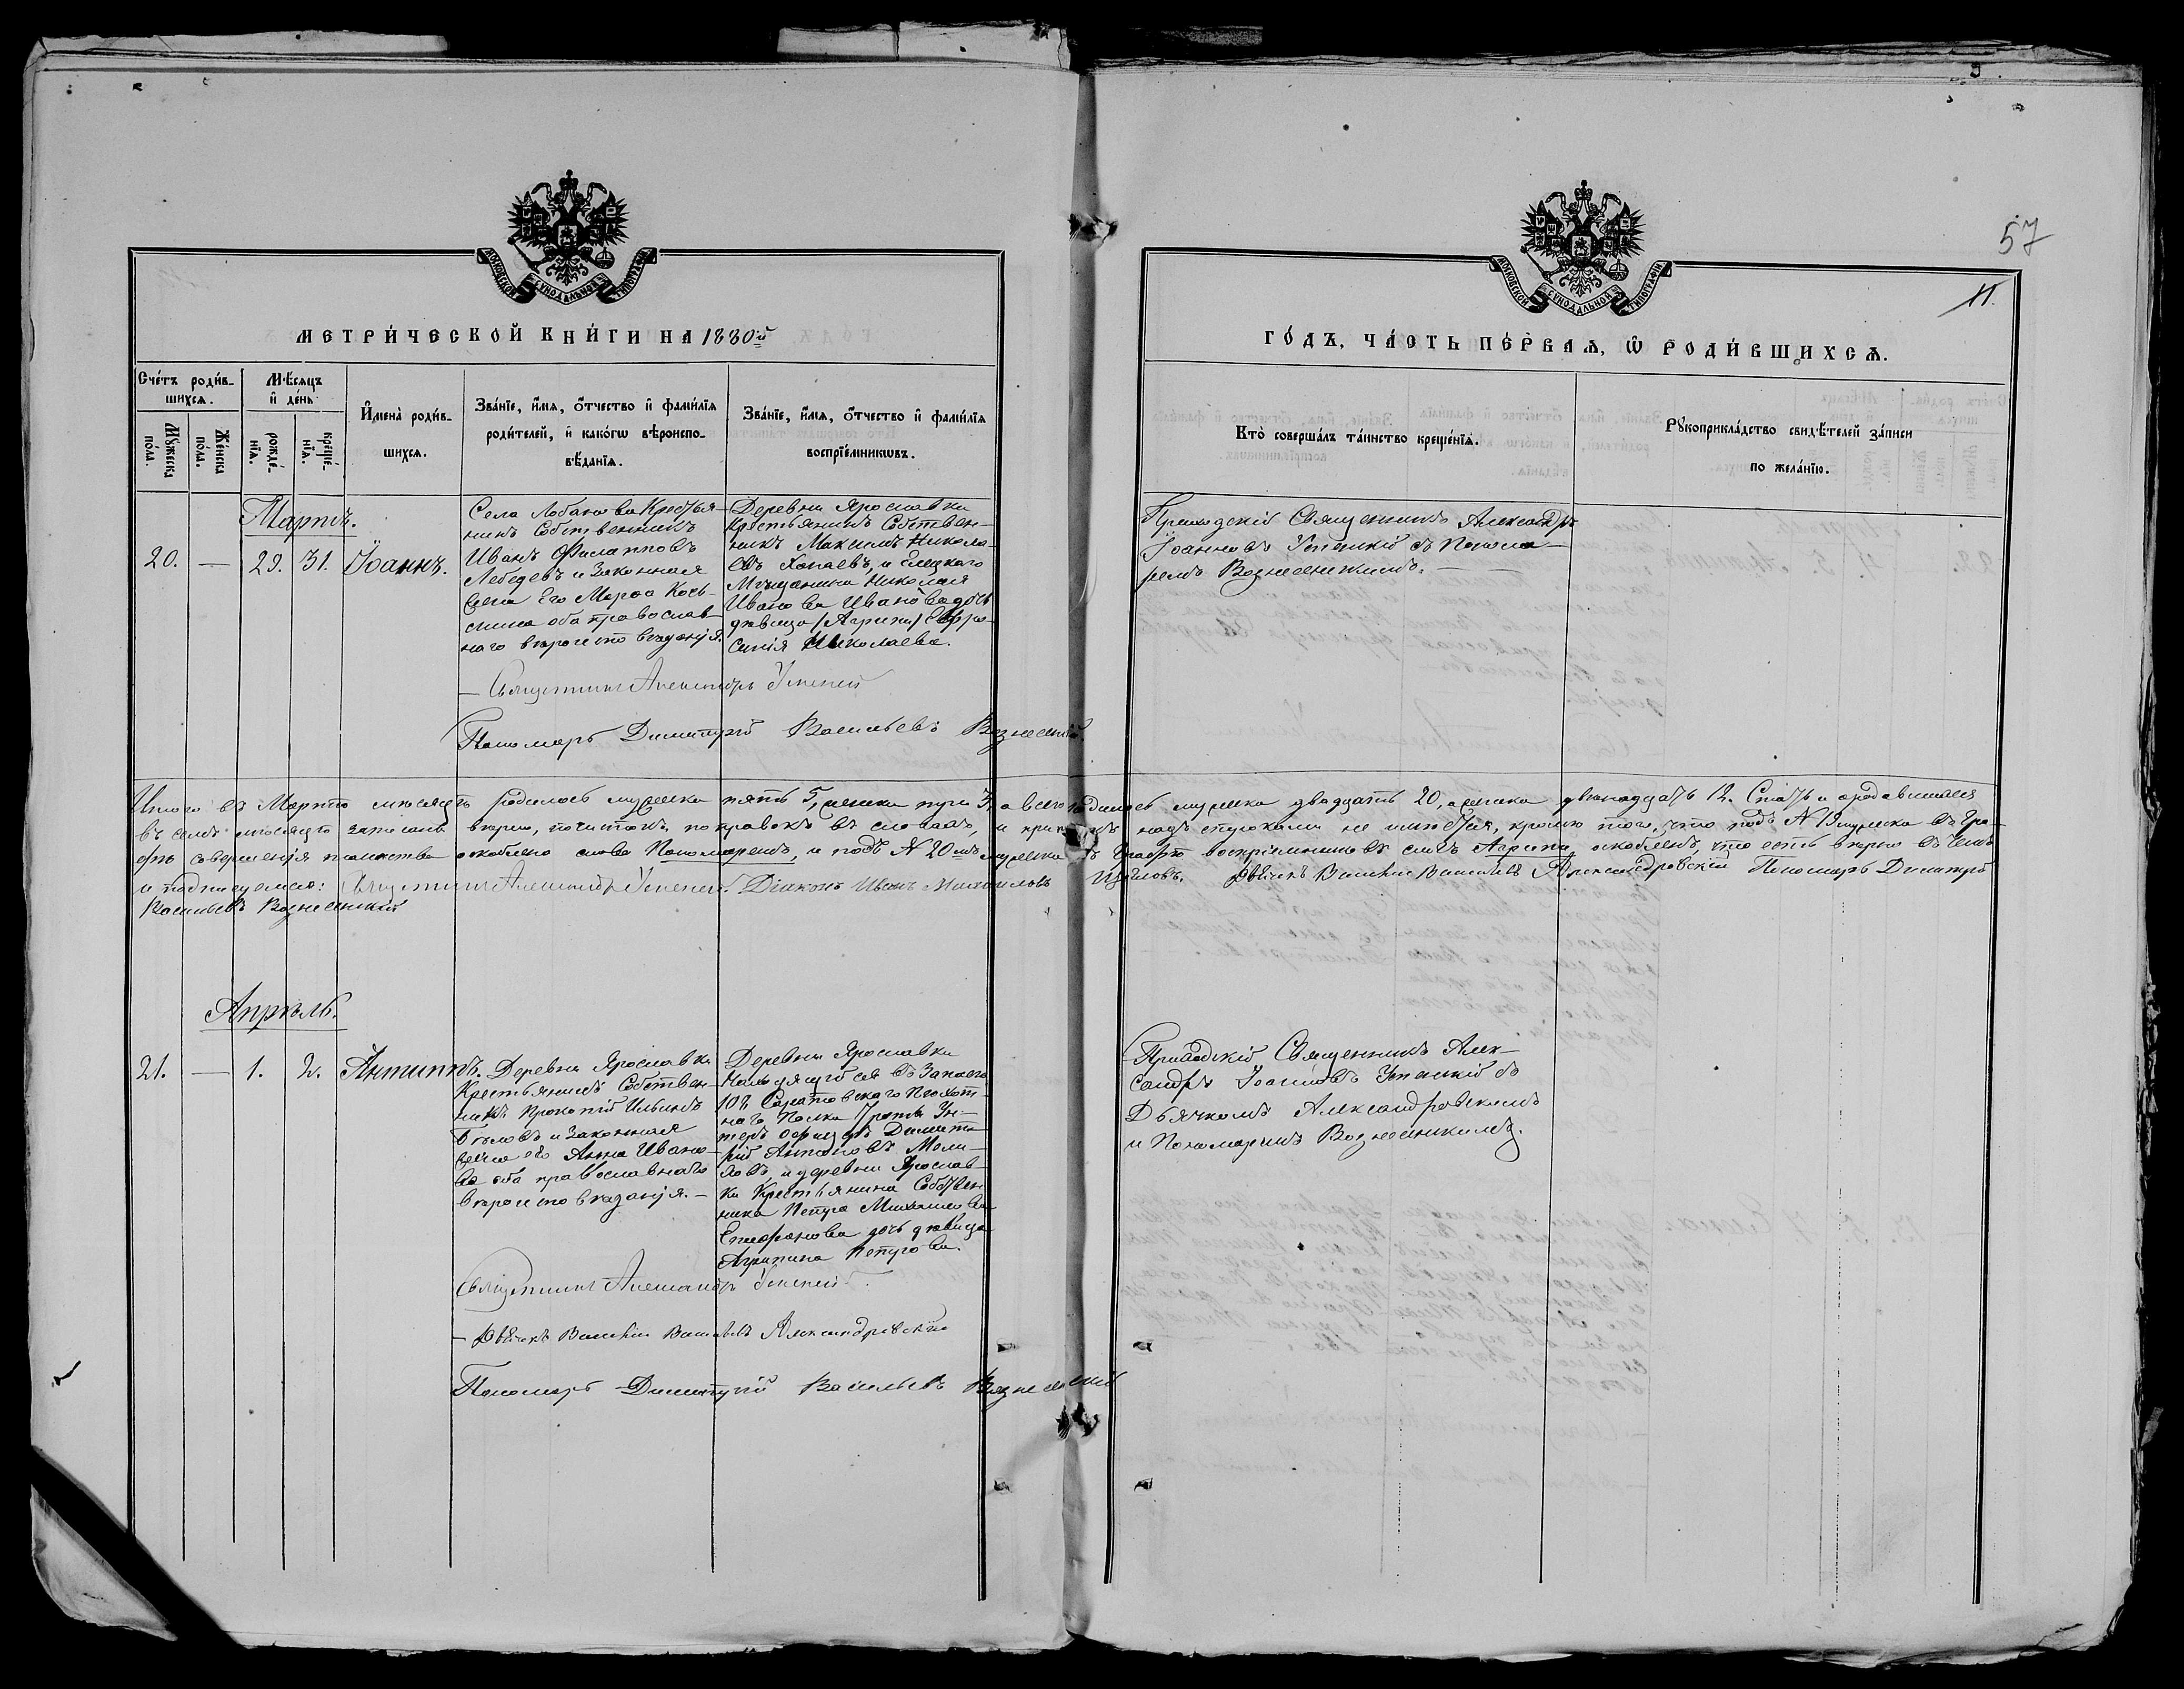 57
11.
МОСКОВСКОЙ СѴНОДАЛЬНОЙ ТИПОГРАФІИ
МОСКОВСКОЙ СѴНОДАЛЬНОЙ ТИПОГРАФІИ
МЕТРИ́ЧЕСКОЙ КНИ́ГИ НА 1880й
ГО́ДЪ, ЧА́СТЬ ПЕ́РВАѦ, Ѡ РОДИ́ВШИХСѦ.
Сче́тъ роди́в-
шихсѧ.
Мꙋ́жеска
по́ла.
Же́нска
по́ла.
М́ѣсѧцъ
и҆ де́нь
рожде́-
нїѧ.
креще́-
нїѧ.
И҆мена̀ роди́в-
шихсѧ.
Зва́нїе, и҆́мѧ, ѻ҆́тчество и҆ фами́лїѧ
роди́телей, и҆ како́гѡ вѣроиспо-
вѣ́данїѧ.
Зва́нїе, и҆́мѧ, ѻ҆́тчество и҆ фами́лїѧ
воспрїе́мникѡвъ.
Кто̀ соверша́лъ та́инство креще́нїѧ.
Рꙋкоприкла́дство свидѣ́телей за́писи
по жела́нїю.
Мартъ.
20. — 29. 31. Іоаннъ.
Села Лобанова Крестья-
нинъ Собственникъ
Иванъ Филатповъ
Лебедевъ и Законная
жена Его Марѳа Козь-
мина оба православ-
наго вѣроисповѣданія.
Деревни Ярославки
Крестьянинъ Собствен-
никъ Максимъ Никола-
евъ Хопаевъ, и Елецкаго
Мѣщанина Николая
Иванова Иванова дочь
дѣвица /Агрипи/ Евфро-
синія Николаева.
Приходскій Священникъ Александръ
Іоанновъ Успенскій съ Понома-
ремъ Вознесенскимъ.
Священникъ Александръ Успенскій
Пономарь Димитрій Васильевъ Вознесенскій.
Итого въ Мартѣ мѣсяцѣ родилось мужеска пять 5, женска три 3, а всего родилось мужеска двадцать 20, женска двенадцать 12. Статьи о родавшихся
въ семъ мѣсяцѣ записаны вѣрно, почистокъ, поправокъ въ словахъ, и приписокъ надъ строками не имѣется, кромѣ того, что подъ № 19 мужеска въ Гра-
фѣ совершенія таинства оскоблено слово Пономаремъ, и подъ № 20мъ мужеска въ Графѣ воспріемниковъ слогъ Агрипи оскобленъ, что есть вѣрно въ чемъ
и подписуемся: Священникъ Александръ Успенскій Діаконъ Иванъ Михаиловъ Дьячекъ Василій Васильевъ Александровскій Пономарь Димитрій
Васильевъ Вознесенскій
Апрѣль.
21. — 1. 2. Антиппъ.
Деревни Ярославки
Крестьянинъ Собствен-
никъ Прокопій Ильинъ
Бѣловъ и Законная
жена его Анна Ивано-
ва оба православнаго
вѣроисповѣданія. —
Деревни Ярославки
Находящійся въ Запасѣ
108 Саратовскаго Пѣхот-
наго Полка Роты Ун-
теръ офицеръ Димит-
рій Антоновъ
и деревни Ярослав-
ки Крестьянина Собствен
ника Петра Михаилова
Епифанова дочь дѣвица
Агрипина Петрова.
Приходскій Священникъ Алек-
сандръ Іоанновъ Успенскій съ
Дьячкомъ Александровскимъ
и Пономаремъ Вознесенскимъ.
Священникъ Александръ Успенскій
— Дьячекъ Василій Васильевъ Александровскій
Пономарь Димитрій Васильевъ Вознесенскій